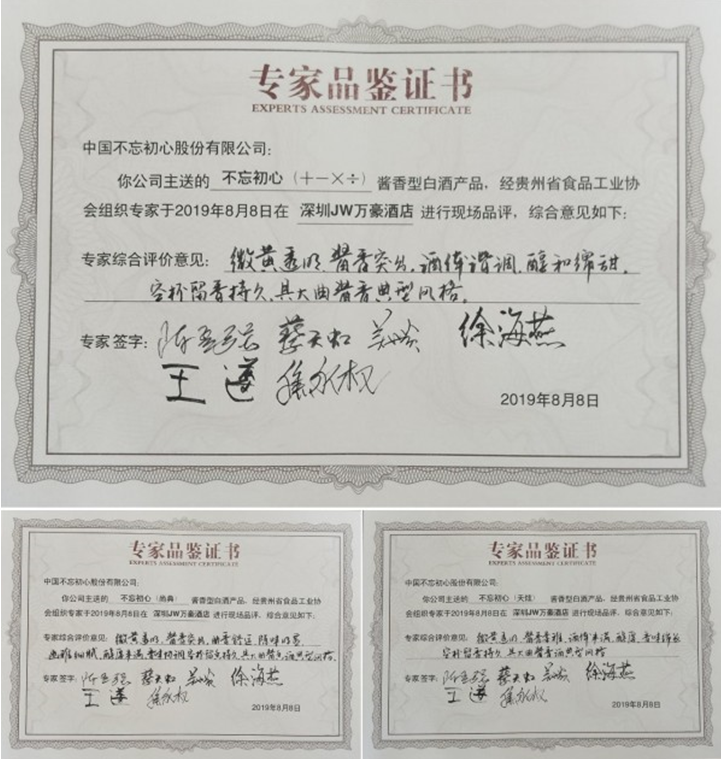 专家品鉴证书
EXPERTS ASSESSMENT CERTIFICATE
中国不忘初心股份有限公司:
你公司主送的 不忘初心（十一×÷） 酱香型白酒产品，经贵州省食品工业协
会组织专家于2019年8月8日在 深圳JW万豪酒店 进行现场品评，综合意见如下:
专家综合评价意见: 微黄透明，酱香突出，酒体谐调，醇和绵甜，
空杯留香持久，具大曲酱香典型风格。
专家签字: 蔡天虹 徐海燕
王遵
2019年8月8日
专家品鉴证书
EXPERTS ASSESSMENT CERTIFICATE
中国不忘初心股份有限公司:
你公司主送的 不忘初心（尚典） 酱香型白酒产品，经贵州省食品工业协
会组织专家于2019年8月8日在 深圳JW万豪酒店 进行现场品评，综合意见如下:
专家综合评价意见: 微黄透明，酱香突出，
幽雅细腻，空杯留香持久，具大曲酱香酒典型风格
专家签字: 蔡天虹 徐海燕
王遵
2019年8月8日
专家品鉴证书
EXPERTS ASSESSMENT CERTIFICATE
中国不忘初心股份有限公司:
你公司主送的 不忘初心（天炫） 酱香型白酒产品，经贵州省食品工业协
会组织专家于2019年8月8日在 深圳JW万豪酒店 进行现场品评，综合意见如下:
专家综合评价意见: 微黄透明，酱香，酒体丰满，醇厚，
空杯留香持久，具大曲酱香酒典型风格
专家签字: 蔡天虹 徐海燕
王遵
2019年8月8日